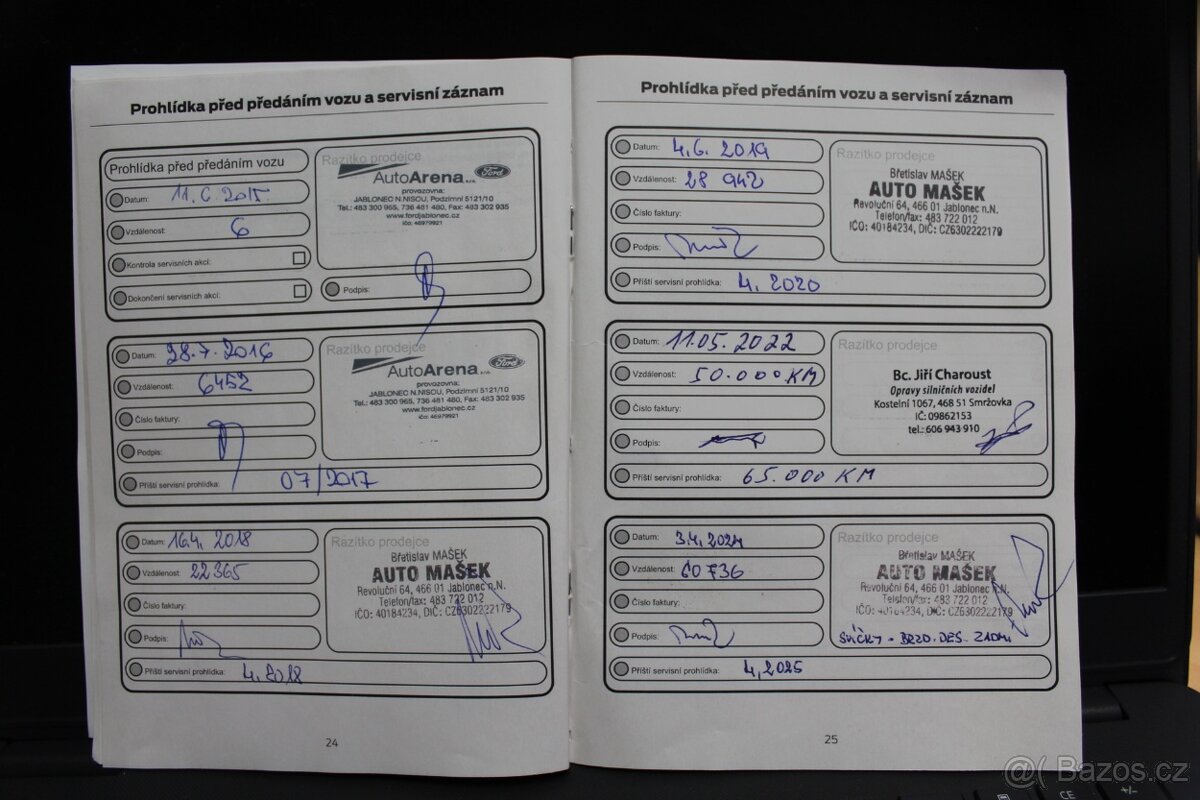 Prohlídka před předáním vozu a servisní záznam
Prohlídka před předáním vozu
Datum: 11.6.2015
Vzdálenost: 6
Kontrola servisních akcí:
Dokončení servisních akcí:
Razítko prodejce
AutoArena s.r.o. Ford
provozovna:
JABLONEC N.NISOU, Podzimní 5121/10
Tel.: 483 300 965, 736 481 480, Fax: 483 302 935
www.fordjablonec.cz
IČo: 46979921
Podpis:
Datum: 28.7.2016
Vzdálenost: 6452
Číslo faktury:
Podpis:
Razítko prodejce
AutoArena s.r.o. Ford
provozovna:
JABLONEC N.NISOU, Podzimní 5121/10
Tel.: 483 300 965, 736 481 480, Fax: 483 302 935
www.fordjablonec.cz
IČo: 46979921
Příští servisní prohlídka: 07/2017
Datum: 16.4. 2018
Vzdálenost: 22365
Číslo faktury:
Podpis:
Razítko prodejce
Břetislav MAŠEK
AUTO MAŠEK
Revoluční 64, 466 01 Jablonec n.N.
Telefon/fax: 483 722 012
IČO: 40184234, DIČ: CZ6302222179
Příští servisní prohlídka: 4.2018
24
Prohlídka před předáním vozu a servisní záznam
Datum: 4.6. 2019
Vzdálenost: 28 942
Číslo faktury:
Podpis:
Razítko prodejce
Břetislav MAŠEK
AUTO MAŠEK
Revoluční 64, 466 01 Jablonec n.N.
Telefon/fax: 483 722 012
IČO: 40184234, DIČ: CZ6302222179
Příští servisní prohlídka: 4. 2020
Datum: 11.05. 2022
Vzdálenost: 50.000 KM
Číslo faktury:
Podpis:
Razítko prodejce
Bc. Jiří Charoust
Opravy silničních vozidel
Kostelní 1067, 468 51 Smržovka
IČ: 09862153
tel.: 606 943 910
Příští servisní prohlídka: 65.000 KM
Datum: 3.4.2024
Vzdálenost: 60736
Číslo faktury:
Podpis:
Razítko prodejce
Břetislav MAŠEK
AUTO MAŠEK
Revoluční 64, 466 01 Jablonec n.N.
Telefon/fax: 483 722 012
IČO: 40184234, DIČ: CZ6302222179
SVÍČKY - BRZD. DES. ZADNÍ
Příští servisní prohlídka: 4,2025
25
CE
+/-
@( Bazos.cz